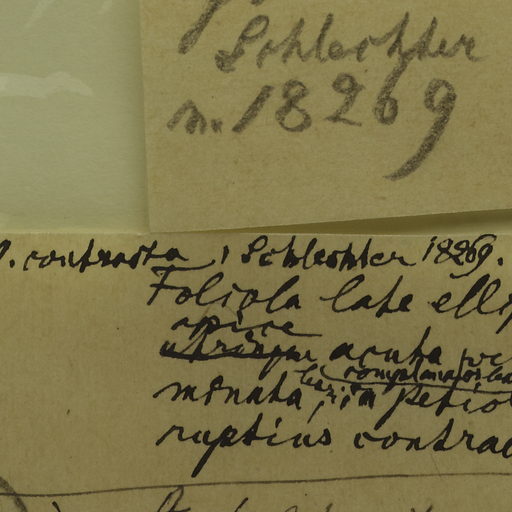 Schlechter
n. 18269
contrasta, Schlechter 18269.
Foliola late ellip
apice
utrinque acuta
minata, in petiol
ruptius contrac